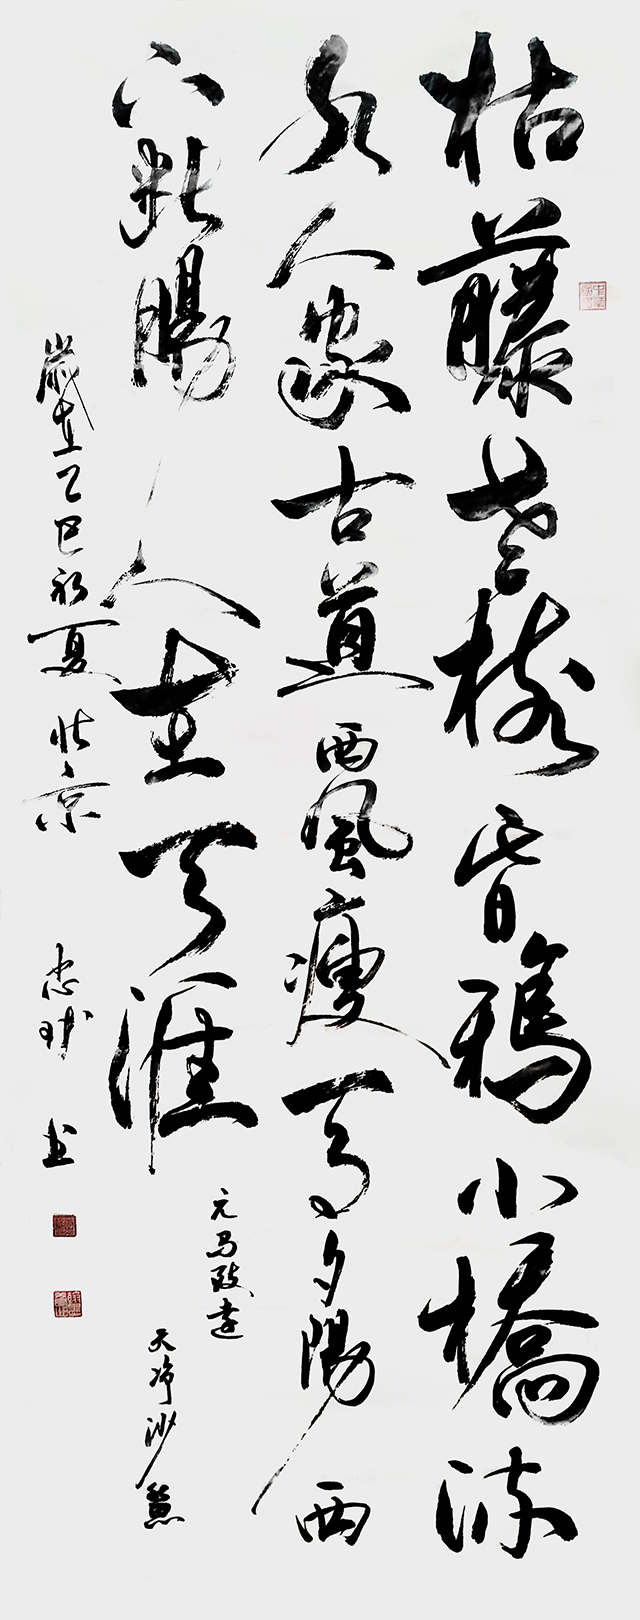 枯藤老樹昏鴉小橋流
水人家古道西風瘦馬夕陽西
下斷腸人在天涯
元马致遠
天净沙
歲在乙巳初夏北京忠书